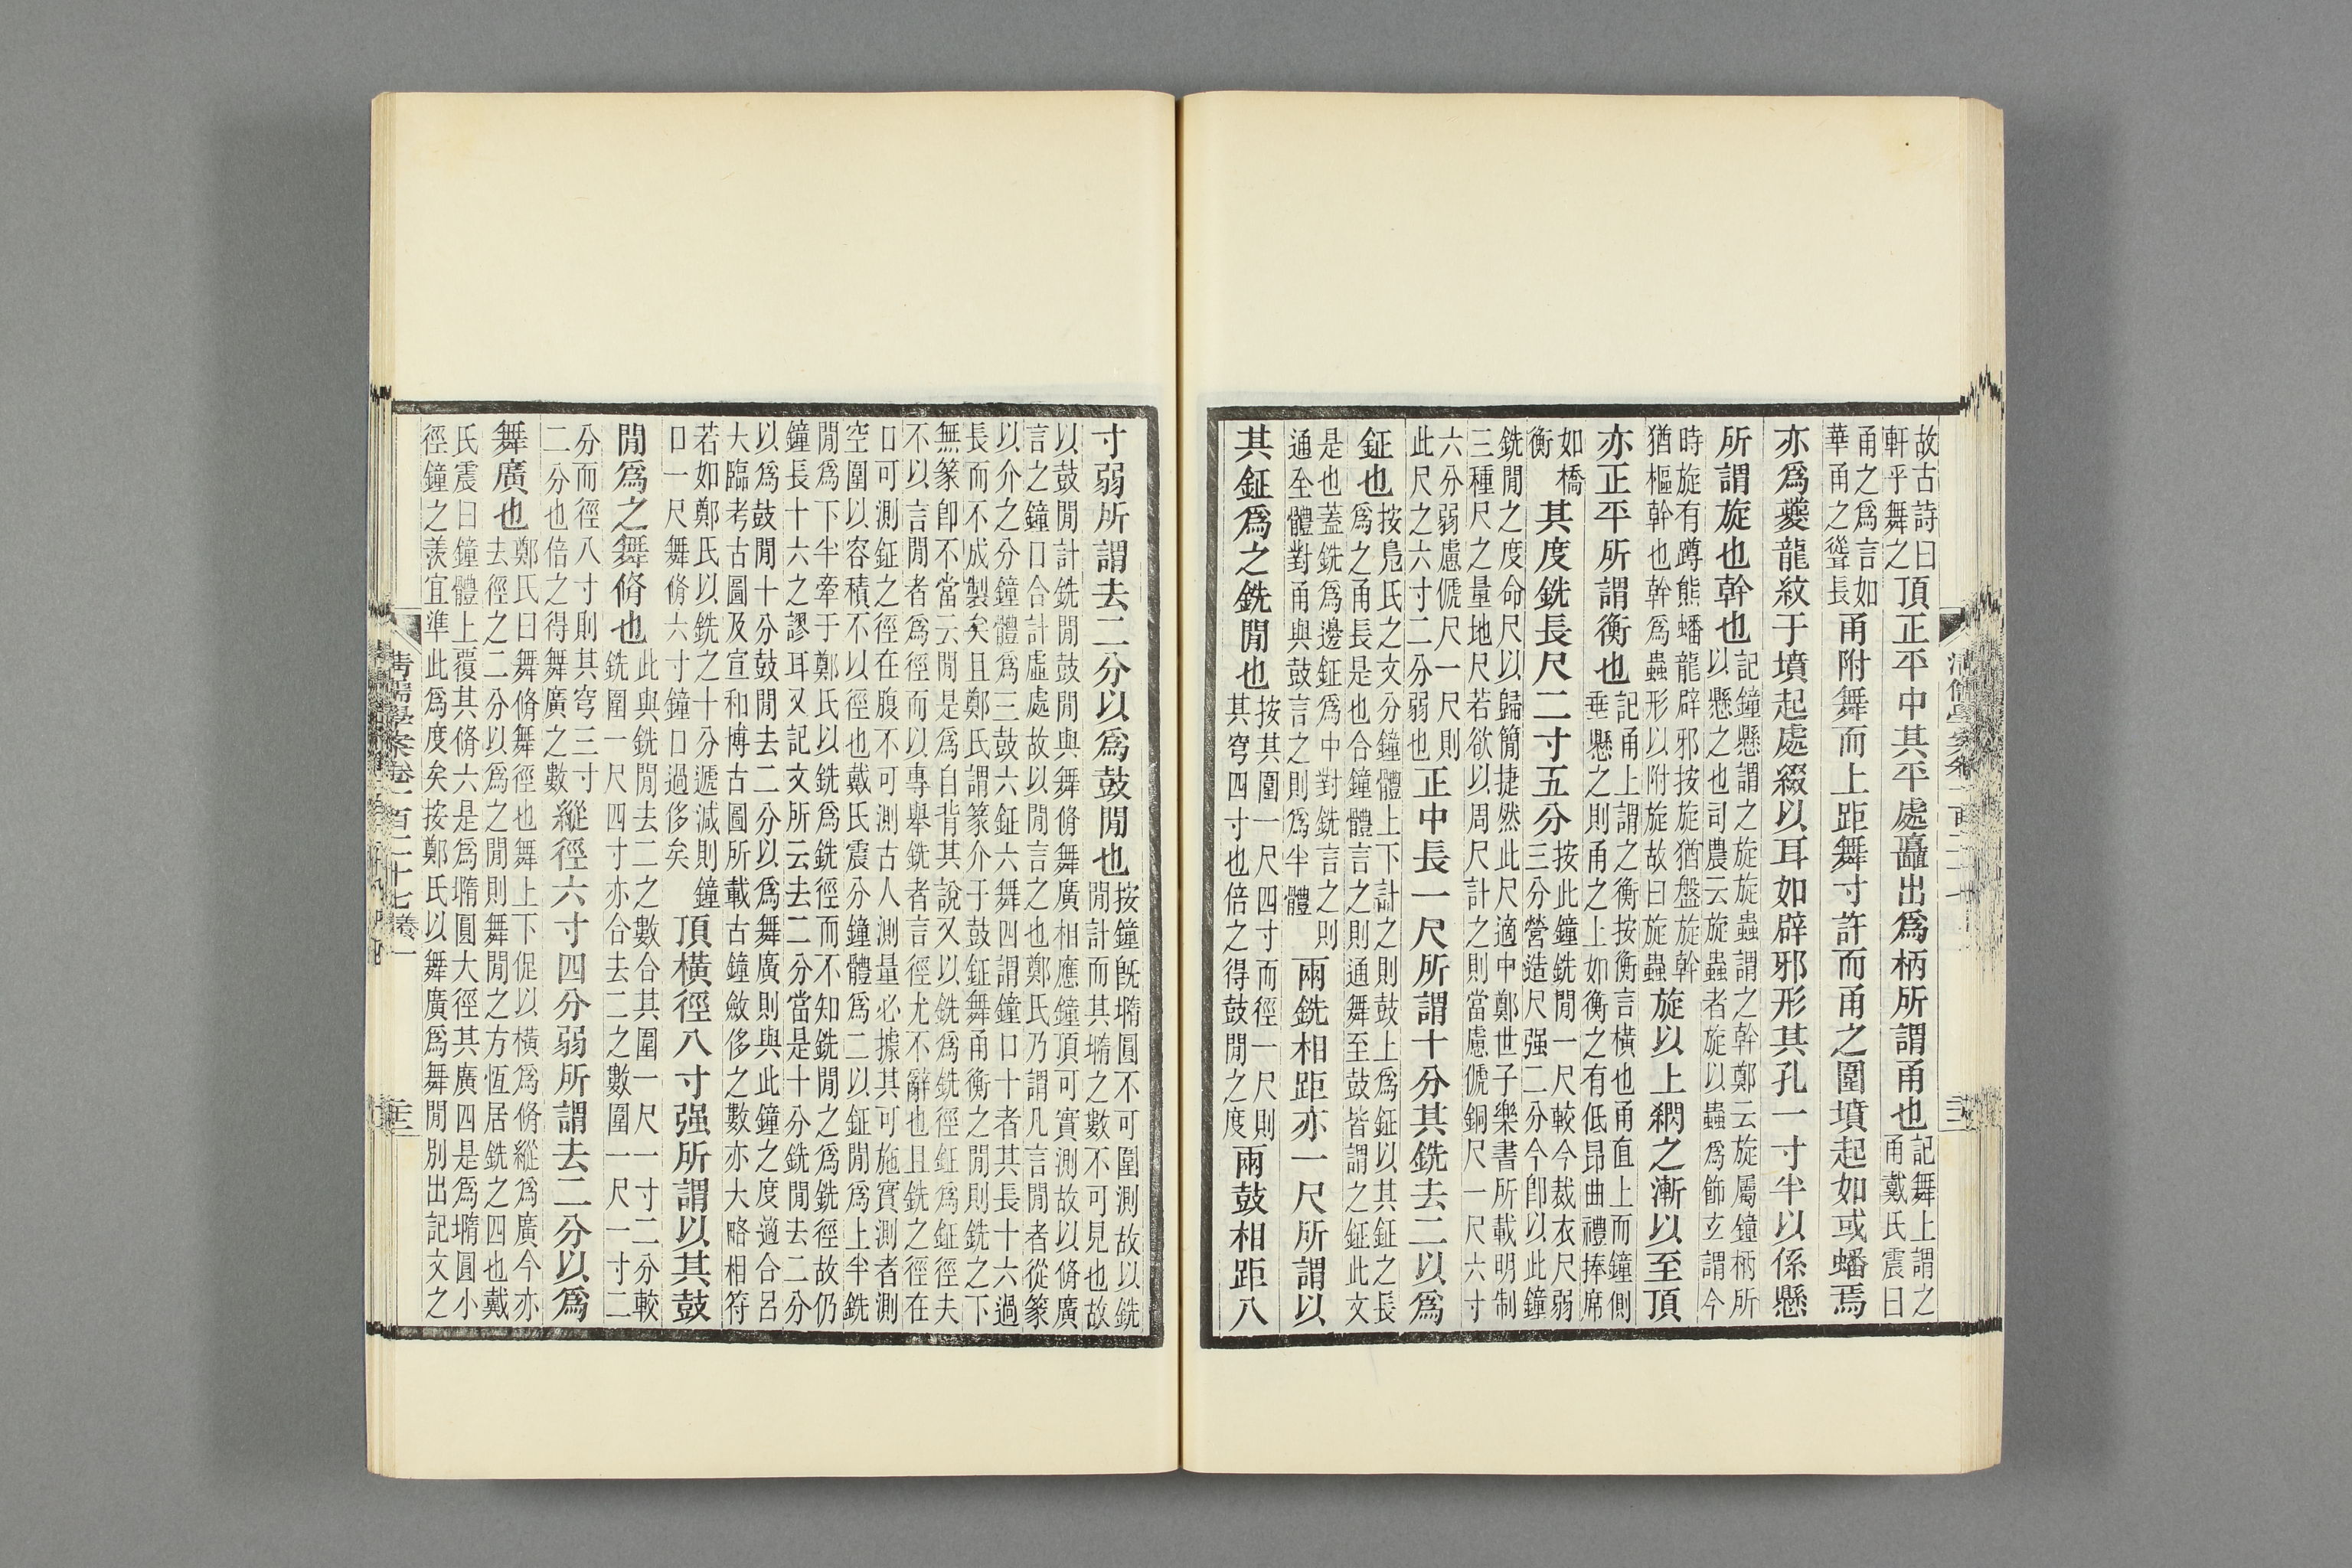 故古詩曰軒乎舞之頂正平中其平處矗出爲柄所謂甬也記舞上謂之甬戴氏震曰
甬之爲言如華甬之聳長甬附舞而上距舞寸許而甬之圍墳起如或蟠焉
亦爲夔龍紋于墳起處綴以耳如辟邪形其孔一寸半以係懸
所謂旋也幹也記鐘懸謂之旋旋蟲謂之幹鄭云旋屬鐘柄所以懸之也司農云旋蟲者旋以蟲爲飾玄謂今
時旋有蹲熊蟠龍辟邪按旋猶盤旋幹猶樞幹也幹爲蟲形以附旋故曰旋蟲旋以上之漸以至頂
亦正平所謂衡也記甬上謂之衡按衡言橫也甬直上而鐘側垂懸之則甬之上如衡之有低昂曲禮捧席
如橋衡其度銑長尺二寸五分按此鐘銑閒一尺較今裁衣尺弱三分營造尺强二分今卽以此鐘
銑閒之度命尺以歸簡捷然此尺適中鄭世子樂書所載明制三種尺之量地尺若欲以周尺計之則當慮俿銅尺一尺六寸
六分弱慮俿尺一尺則此尺之六寸二分弱也正中長一尺所謂十分其銑去二以爲
鉦也按鳧氏之文分鐘體上下計之則鼓上爲鉦以其鉦之長爲之甬長是也合鐘體言之則通舞至鼓皆謂之鉦此文
是也蓋銑爲邊鉦爲中對銑言之則通全體對甬與鼓言之則爲半體兩銑相距亦一尺所謂以
其鉦爲之銑閒也按其圍一尺四寸而徑一尺則其穹四寸也倍之得鼓閒之度兩鼓相距八
寸弱所謂去二分以爲鼓閒也按鐘旣墮圓不可圍測故以銑閒計而其墮之數不可見也故
以鼓閒計銑閒鼓閒與舞脩舞廣相應鐘頂可實測故以脩廣言之鐘口合計虛處故以閒言之也鄭氏乃謂凡言閒者從篆
以介之分鐘體爲三鼓六鉦六舞四謂鐘口十者其長十六過長而不成製矣且鄭氏謂篆介于鼓鉦舞甬衡之閒則銑之下
無篆卽不當云閒是爲自背其說又以銑爲銑徑鉦爲鉦徑夫不以言閒者爲徑而以專舉銑者言徑尤不辭也且銑之徑在
口可測鉦之徑在腹不可測古人測量必據其可施實測者測空圍以容積不以徑也戴氏震分鐘體爲二以鉦閒爲上半銑
閒爲下半牽于鄭氏以銑爲銑徑而不知銑閒之爲銑徑故仍鐘長十六之謬耳又記文所云去二分當是十分銑閒去二分
以爲鼓閒十分鼓閒去二分以爲舞廣則與此鐘之度適合呂大臨考古圖及宣和博古圖所載古鐘斂侈之數亦大略相符
若如鄭氏以銑之十分遞減則鐘口一尺舞脩六寸鐘口過侈矣頂橫徑八寸强所謂以其鼓
閒爲之舞脩也此與銑閒去二之數合其圍一尺一寸二分較銑圍一尺四寸亦合去二之數圍一尺一寸二
分而徑八寸則其穹三寸二分也倍之得舞廣之數縱徑六寸四分弱所謂去二分以爲
舞廣也鄭氏曰舞脩舞徑也舞上下促以橫爲脩縱爲廣今亦去徑之二分以爲之閒則舞閒之方恆居銑之四也戴
氏震曰鐘體上覆其脩六是爲墮圓大徑其廣四是爲墮圓小徑鐘之羨宜準此爲度矣按鄭氏以舞廣爲舞閒別出記文之
清儒學案卷一百二十七